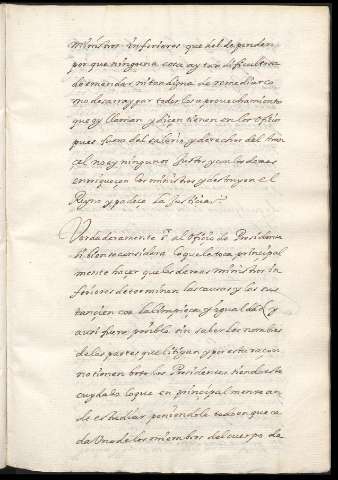 ministros inferiores que del dependen
por que ninguna cosa ay tan dificultosa
de emendar ni tan digna de remediar co
mo desarraygar todos los aprovechamientos
que oy llaman y dicen tienen en los oficios
pues fuera del salario y derechos del aran
cel no ay ningunos justos y con los demas
enriqueçen los ministros y destruyen el
Reyno y padece la justicia.
Verdaderamente al oficio de Presidente
si bien se considera lo que le toca principal
mente hacer que los demas ministros in
feriores determinen las causas y las sus
tancien con la limpieça y ygualdad y
aun fuera posible sin saber los nombres
de las partes que litigan y por esta raçon
no tienen voto los Presidentes siendo este
cuydado lo que en principal mente an
de estudiar poniendole todo en que ca
da Uno de los miembros del cuerpo de